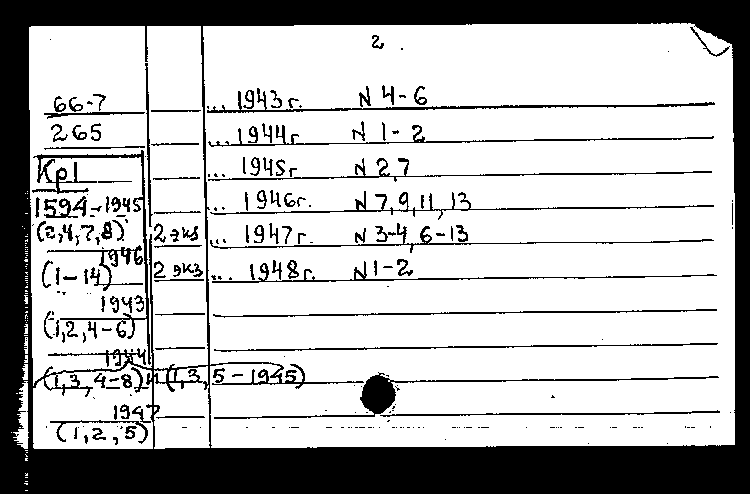 2.
66-7 ... 1943г. N 4-6
265 ... 1944г N 1-2
Кр1 ... 1945г N 2,7
1594-1945 ... 1946г. N 7,9,11,13
(2,4,7,8) 2 экз ... 1947г. N 3-4, 6-13
1946
(1-14) 2 экз ... 1948г. N 1-2
1943
(1,2,4-6)
1944
(1,3,4-8) и (1,3,5-1945)
1947
(1,2,5)